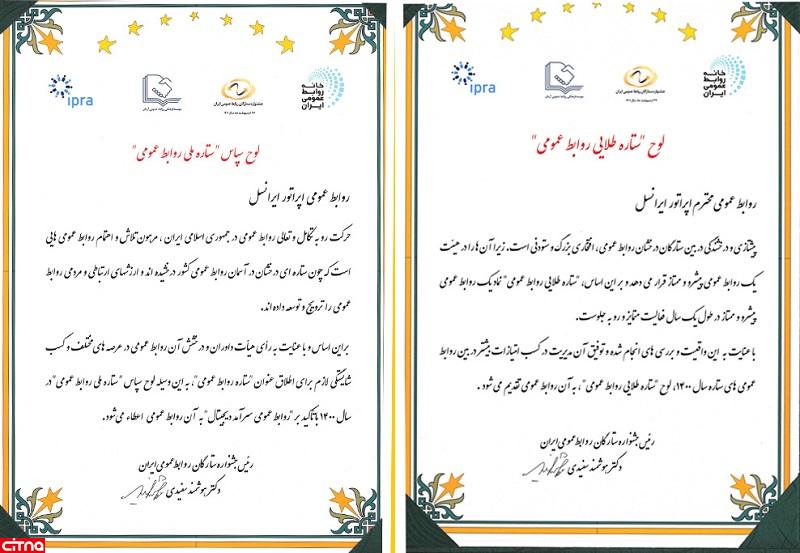 خانه
روابط
عمومی
ایران
جشنواره ستارگان روابط عمومی ایران
ipra
لوح "ستاره طلایی روابط عمومی"
روابط عمومی محترم اپراتور ایرانسل
پیشتازی و درخشندگی در بین ستارگان درخشان روابط عمومی، افتخاری بزرگ و ستودنی است. زیرا آن ها را در هیئت
یک روابط عمومی پیشرو و ممتاز قرار می دهد و بر این اساس، "ستاره طلایی روابط عمومی" نماد یک روابط عمومی
پیشرو و ممتاز در طول یک سال فعالیت متمایز و رو به جلوست.
با عنایت به این واقعیت و بررسی های انجام شده و توفیق آن مدیریت در کسب امتیازات بیشتر در بین روابط
عمومی های ستاره سال ۱۴۰۰، لوح "ستاره طلایی روابط عمومی"، به آن روابط عمومی تقدیم می شود.
رئیس جشنواره ستارگان روابط عمومی ایران
دکتر هوشمند سفیدی
خانه
روابط
عمومی
ایران
جشنواره ستارگان روابط عمومی ایران
ipra
لوح سپاس "ستاره ملی روابط عمومی"
روابط عمومی اپراتور ایرانسل
حرکت رو به تکامل و تعالی روابط عمومی در جمهوری اسلامی ایران، مرهون تلاش و اهتمام روابط عمومی هایی
است که چون ستاره ای درخشان در آسمان روابط عمومی کشور درخشیده اند و ارزشهای ارتباطی و مردمی روابط
عمومی را ترویج و توسعه داده اند.
بر این اساس و با عنایت به رأی هیأت داوران و درخشش آن روابط عمومی در عرصه های مختلف و کسب
شایستگی لازم برای اطلاق عنوان "ستاره روابط عمومی"، به این وسیله لوح سپاس "ستاره ملی روابط عمومی" در
سال ۱۴۰۰ با تاکید بر "روابط عمومی سرآمد دیجیتال" به آن روابط عمومی اعطاء می شود.
رئیس جشنواره ستارگان روابط عمومی ایران
دکتر هوشمند سفیدی
citna